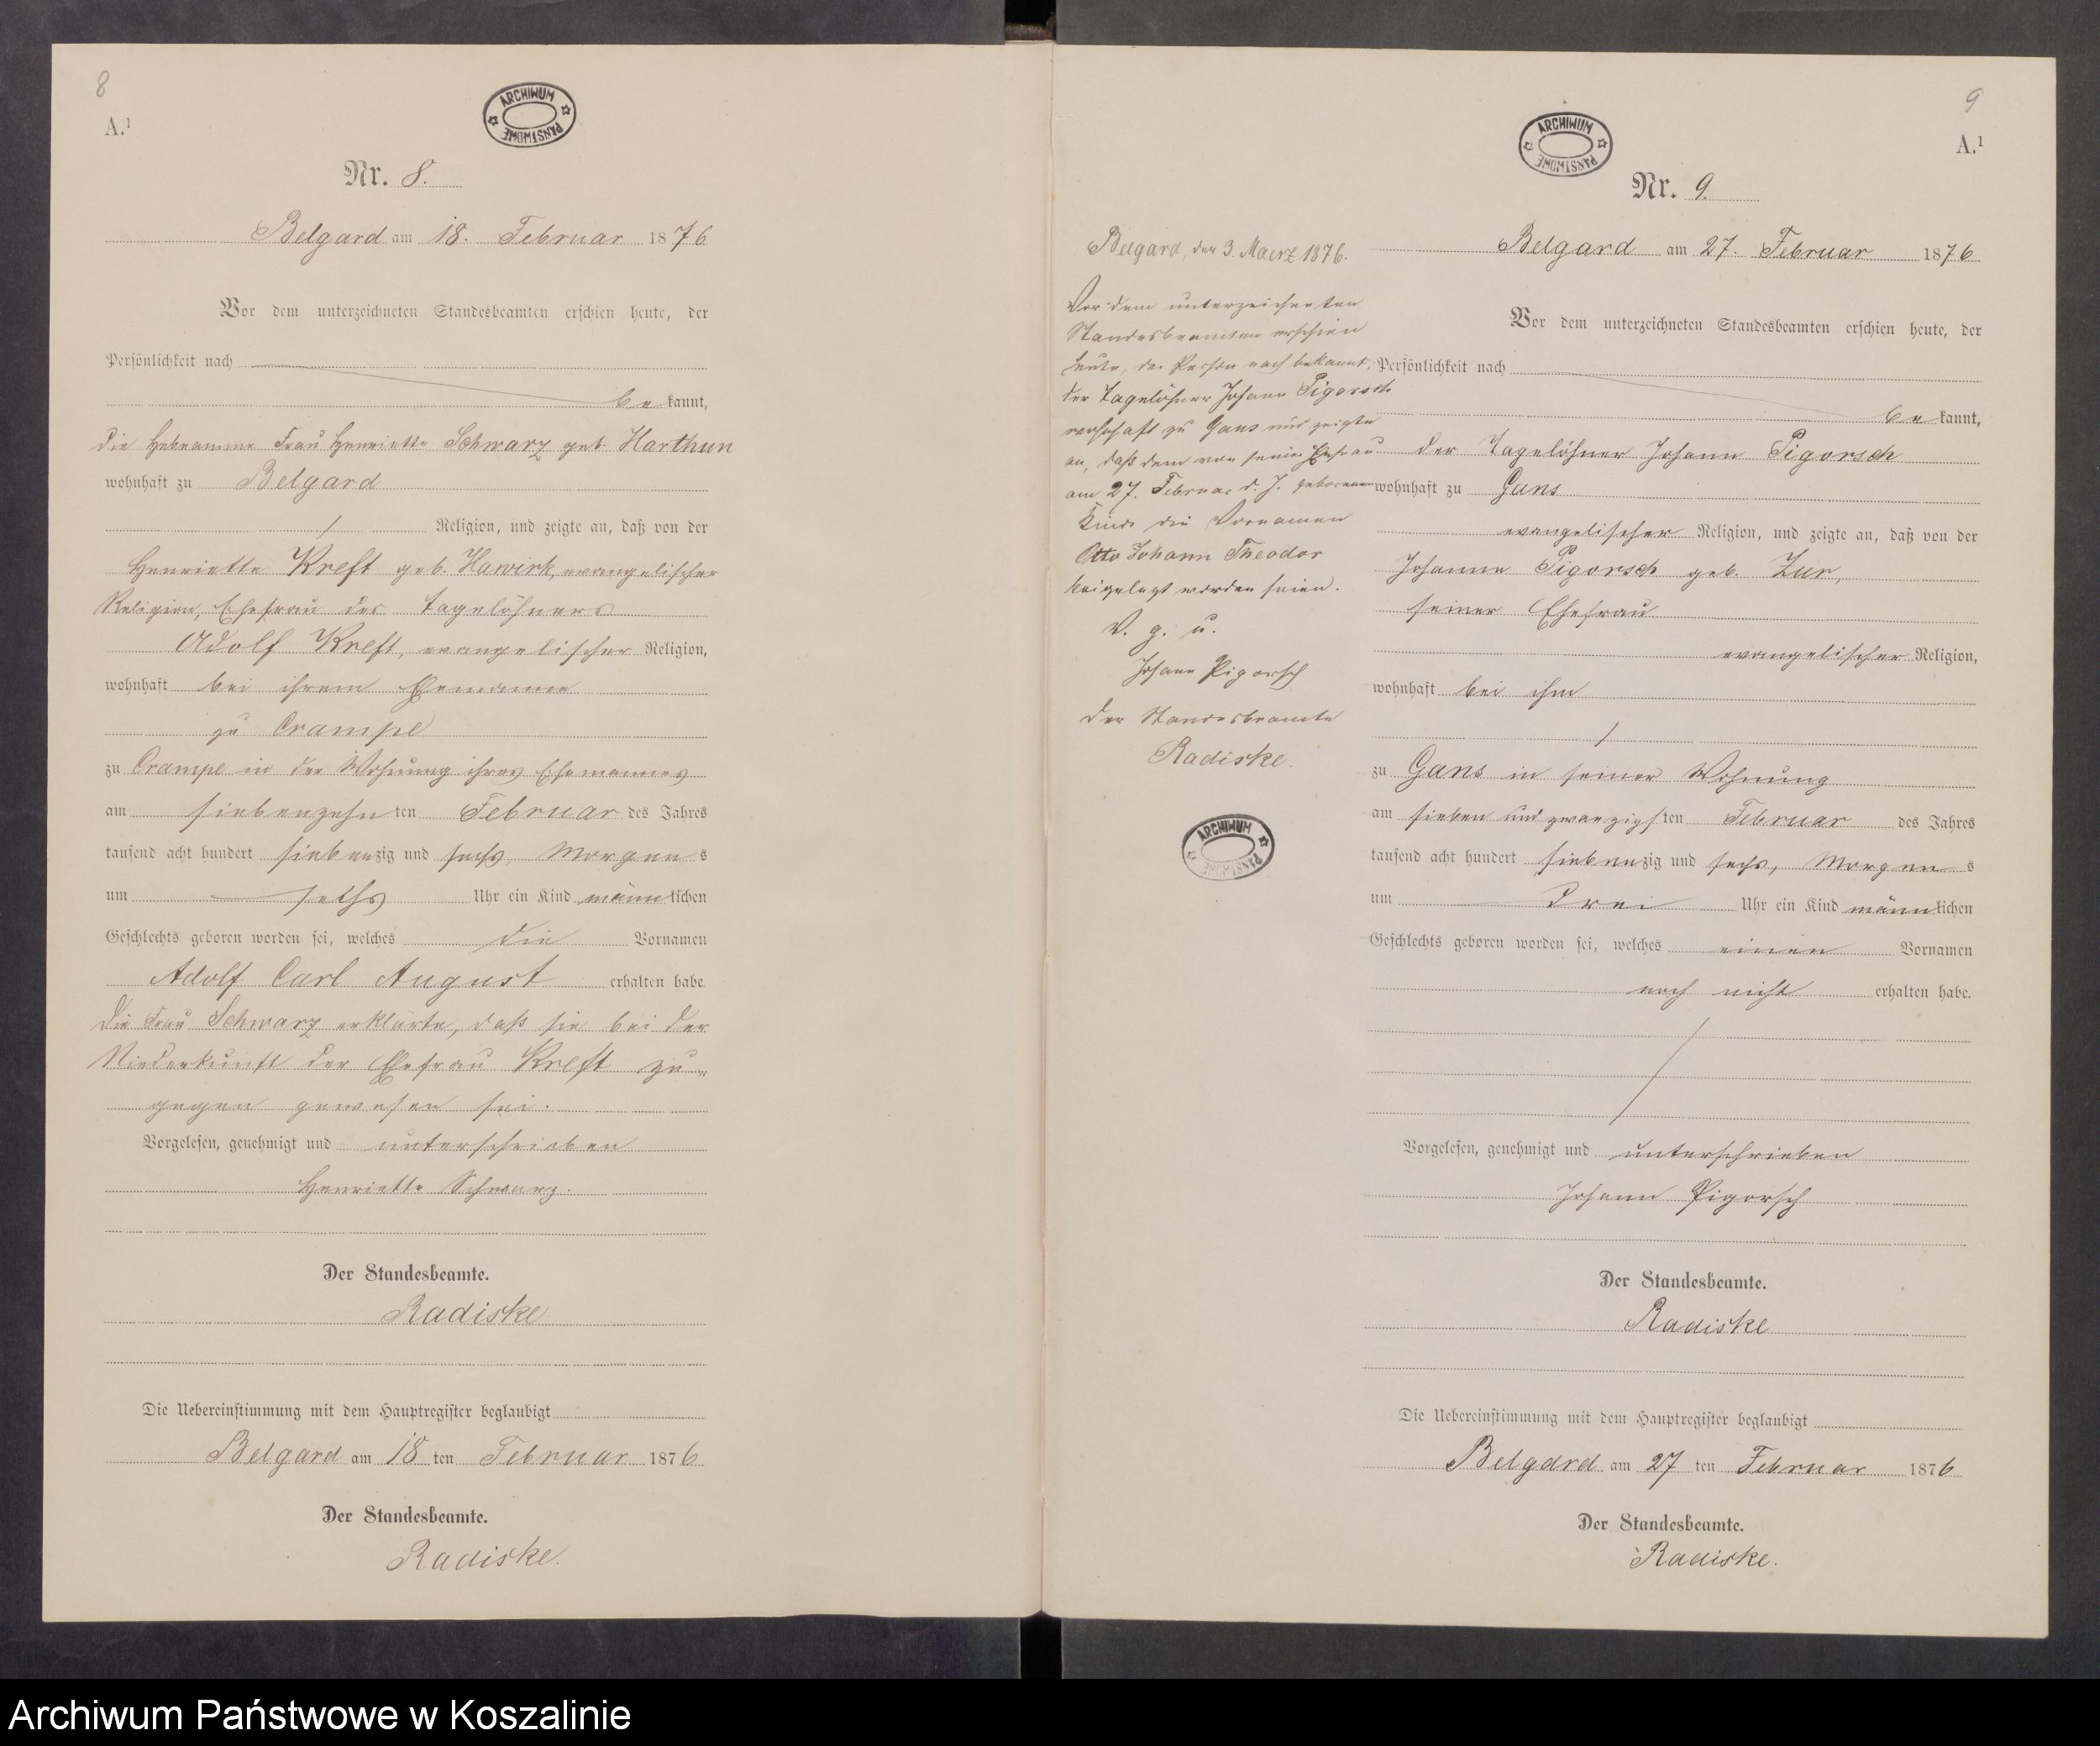 8
A.¹
ARCHIWUM PAŃSTWOWE
Nr. 8.
Belgard am 18. Februar 1876
Vor dem unterzeichneten Standesbeamten erschien heute, der
Persönlichkeit nach
bekannt,
die Hebeamme Frau Henriette Schwarz geb. Harthun
wohnhaft zu Belgard
Religion, und zeigte an, daß von der
Henriette Kreft geb. Hawirk, evangelischer
Religion, Ehefrau des Tagelöhners
Adolf Kreft, evangelischer Religion,
wohnhaft bei ihrem Ehemanne
zu Crampe
zu Crampe in der Wohnung ihres Ehemannes
am siebenzehnten Februar des Jahres
tausend acht hundert siebenzig und sechs, Morgens
um sechs Uhr ein Kind männlichen
Geschlechts geboren worden sei, welches die Vornamen
Adolf Carl August erhalten habe
Die Frau Schwarz erklärte, daß sie bei der
Niederkunft der Ehefrau Kreft zu-
gegen gewesen sei.
Vorgelesen, genehmigt und unterschrieben
Henriette Schwarz.
Der Standesbeamte.
Radiske
Die Uebereinstimmung mit dem Hauptregister beglaubigt
Belgard am 18 ten Februar 1876
Der Standesbeamte.
Radiske.
9
A.¹
ARCHIWUM PAŃSTWOWE
Nr. 9.
Belgard, den 3. Maerz 1876.
Vor dem unterzeichneten
Standesbeamten erschien
heute, der Person nach bekannt,
der Tagelöhner Johann Pigorsch
wohnhaft zu Gans und zeigte
an, daß dem von seiner Ehefrau
am 27. Februar d. J. geborenen
Kinde die Vornamen
Otto Johann Theodor
beigelegt worden seien.
V. g. u.
Johann Pigorsch
Der Standesbeamte
Radiske.
ARCHIWUM PAŃSTWOWE
Belgard am 27. Februar 1876
Vor dem unterzeichneten Standesbeamten erschien heute, der
Persönlichkeit nach
bekannt,
der Tagelöhner Johann Pigorsch
wohnhaft zu Gans
evangelischer Religion, und zeigte an, daß von der
Johanne Pigorsch geb. Zur,
seiner Ehefrau
evangelischer Religion,
wohnhaft bei ihm
zu Gans in seiner Wohnung
am sieben und zwanzigsten Februar des Jahres
tausend acht hundert siebenzig und sechs, Morgens
um drei Uhr ein Kind männlichen
Geschlechts geboren worden sei, welches einen Vornamen
noch nicht erhalten habe.
Vorgelesen, genehmigt und unterschrieben
Johann Pigorsch
Der Standesbeamte.
Radiske
Die Uebereinstimmung mit dem Hauptregister beglaubigt
Belgard am 27 ten Februar 1876
Der Standesbeamte.
Radiske.
Archiwum Państwowe w Koszalinie